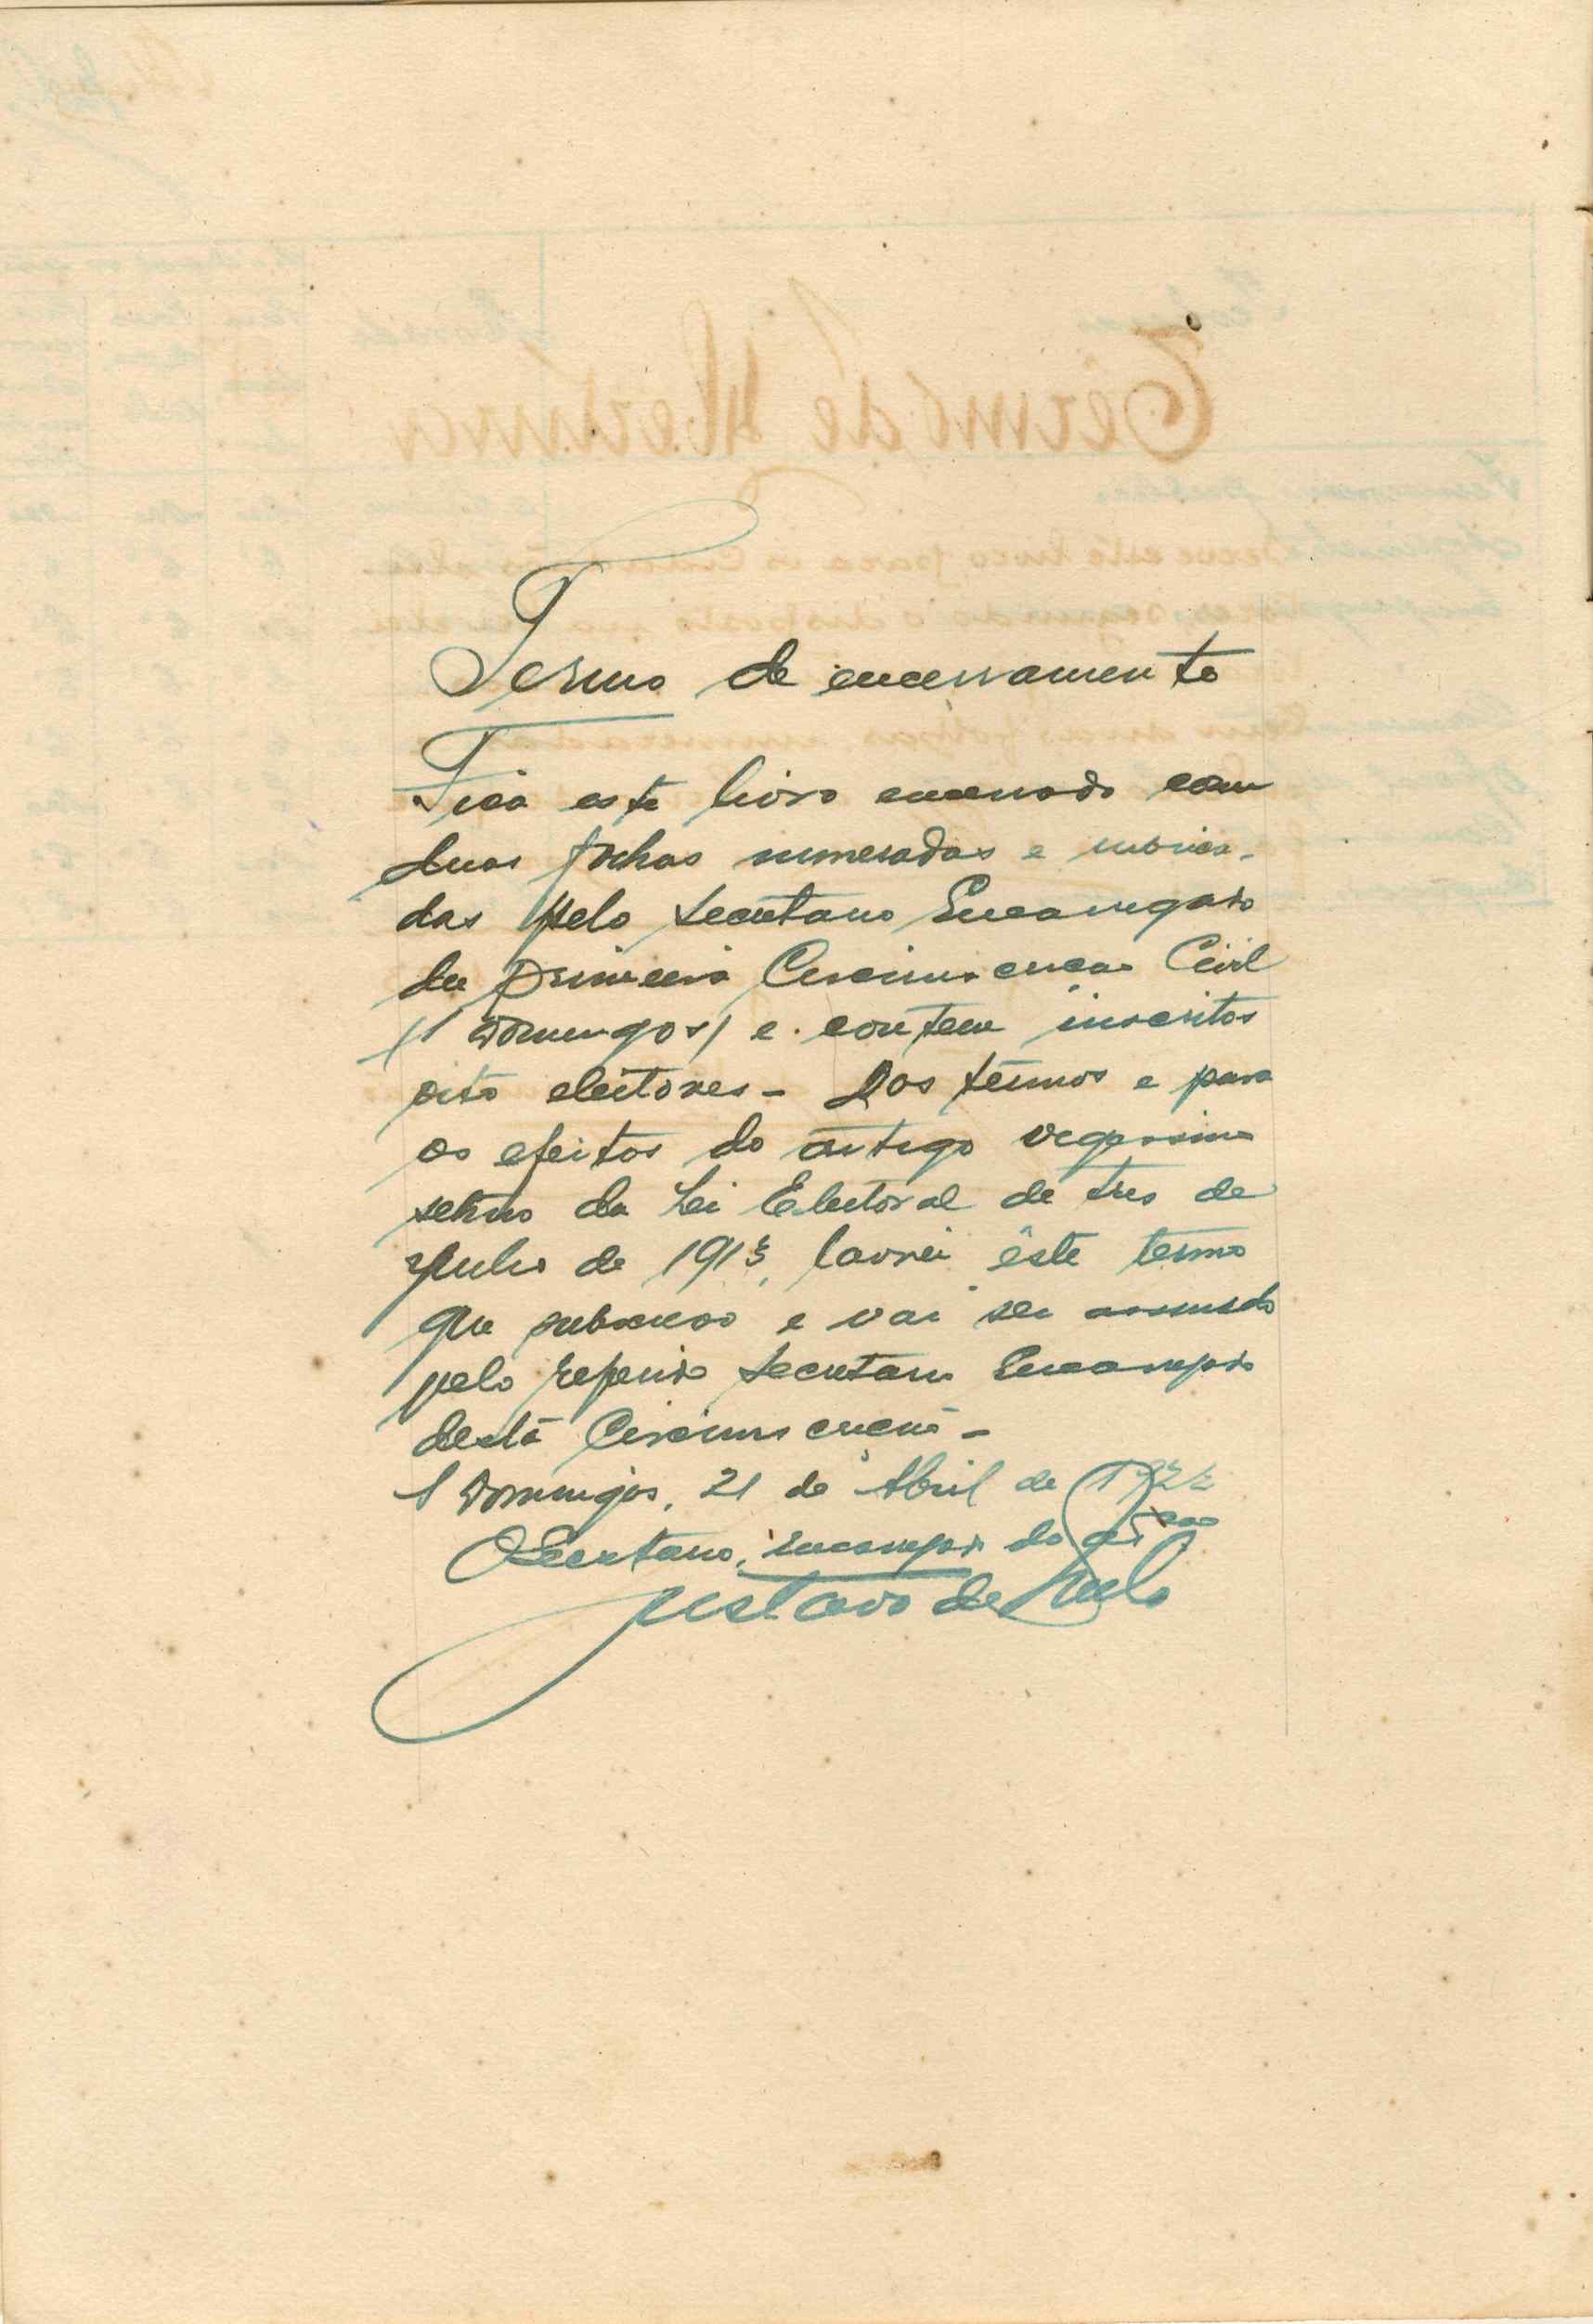 Termo de encerramento
Fica este livro encerrado com
duas folhas numeradas e rubrica-
das pelo Secretario Encarregado
da Primeira Circunscrição Civil
(S Domingos) e contem inscritos
oito eleitores - Nos termos e para
os efeitos do artigo vigessimo
setimo da Lei Eleitoral de tres de
Julho de 1913, lavrei êste termo
que subscrevo e vai ser assinado
pelo referido Secretario Encarregado
desta Circunscrição -
S Domingos, 21 de Abril de 1922
O Secretario, encarregado da
Gustavo de Melo